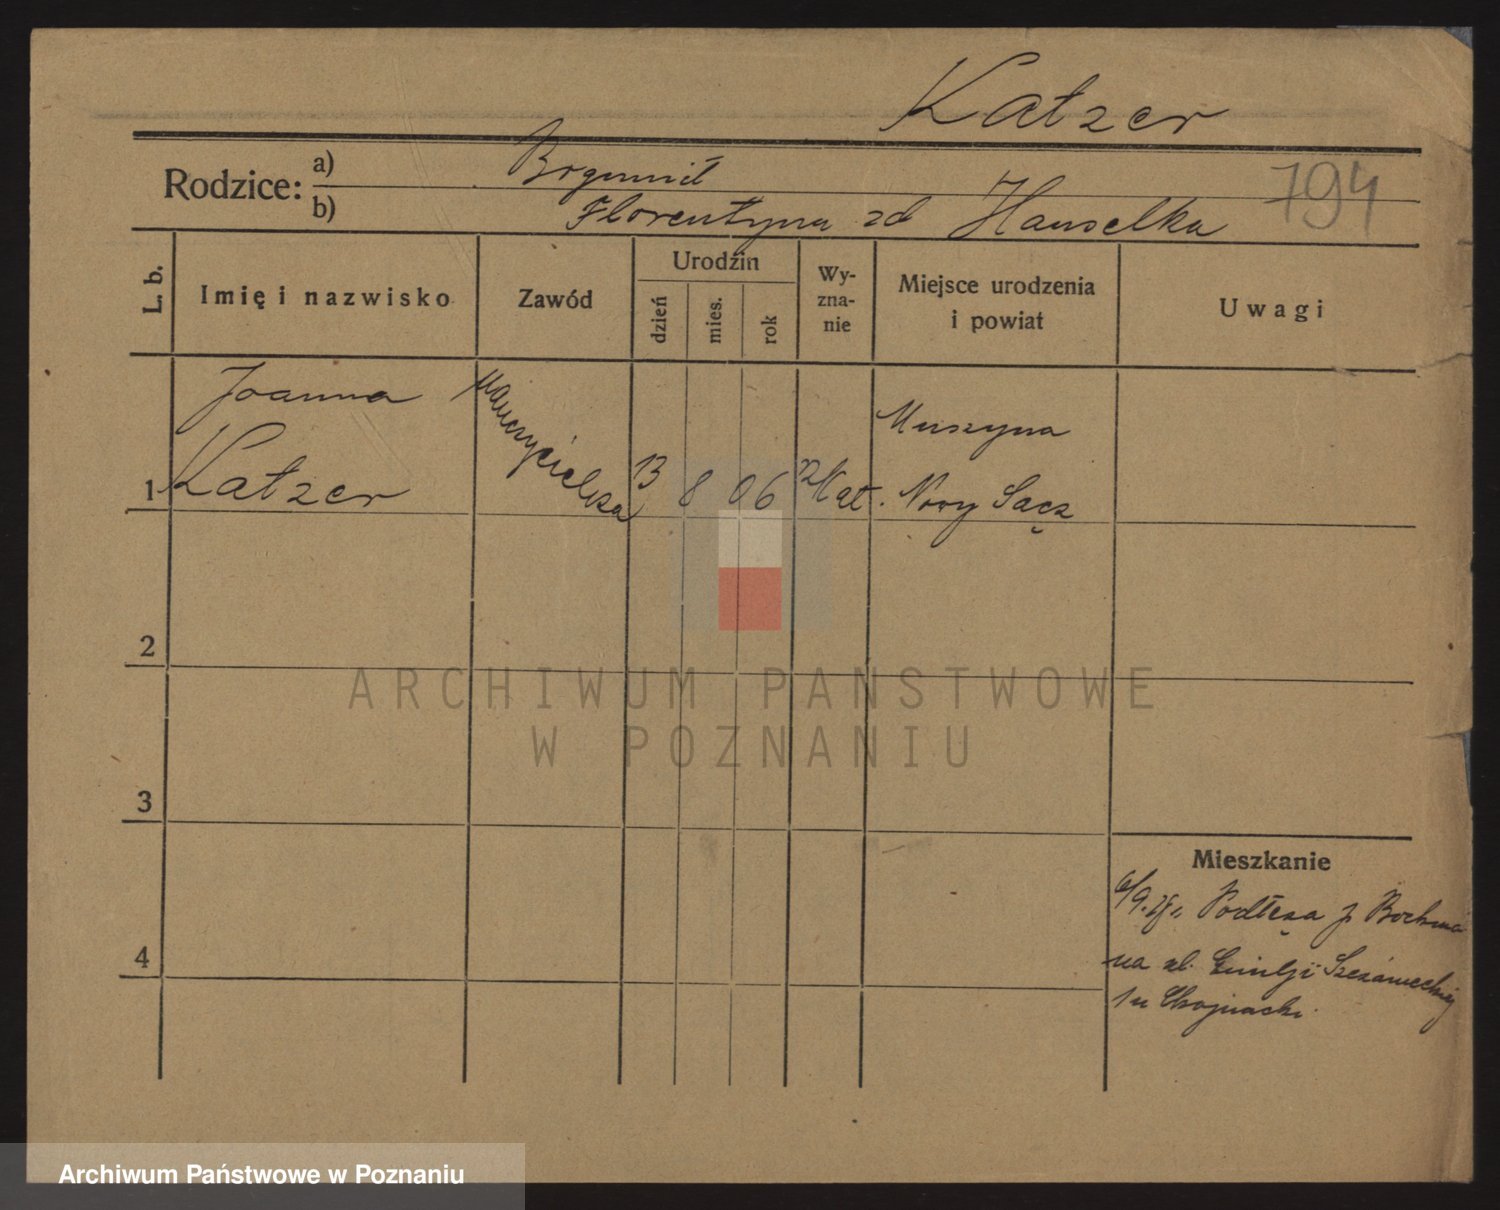 Katzer
Rodzice: a) Bogumił
b) Florentyna zd Hanselka
794
L. b.
Imię i nazwisko
Zawód
Urodzin
dzień
mies.
rok
Wy-
zna-
nie
Miejsce urodzenia
i powiat
Uwagi
Joanna
1 Katzer
Nauczycielka
13 8 06 rz Kat.
Muszyna
Nowy Sącz
2
3
4
Mieszkanie
Podłęża p. Bochnia
na ul. Emilji Szczanieckiej
1 u Chojnacki
ARCHIWUM PAŃSTWOWE
W POZNANIU
Archiwum Państwowe w Poznaniu